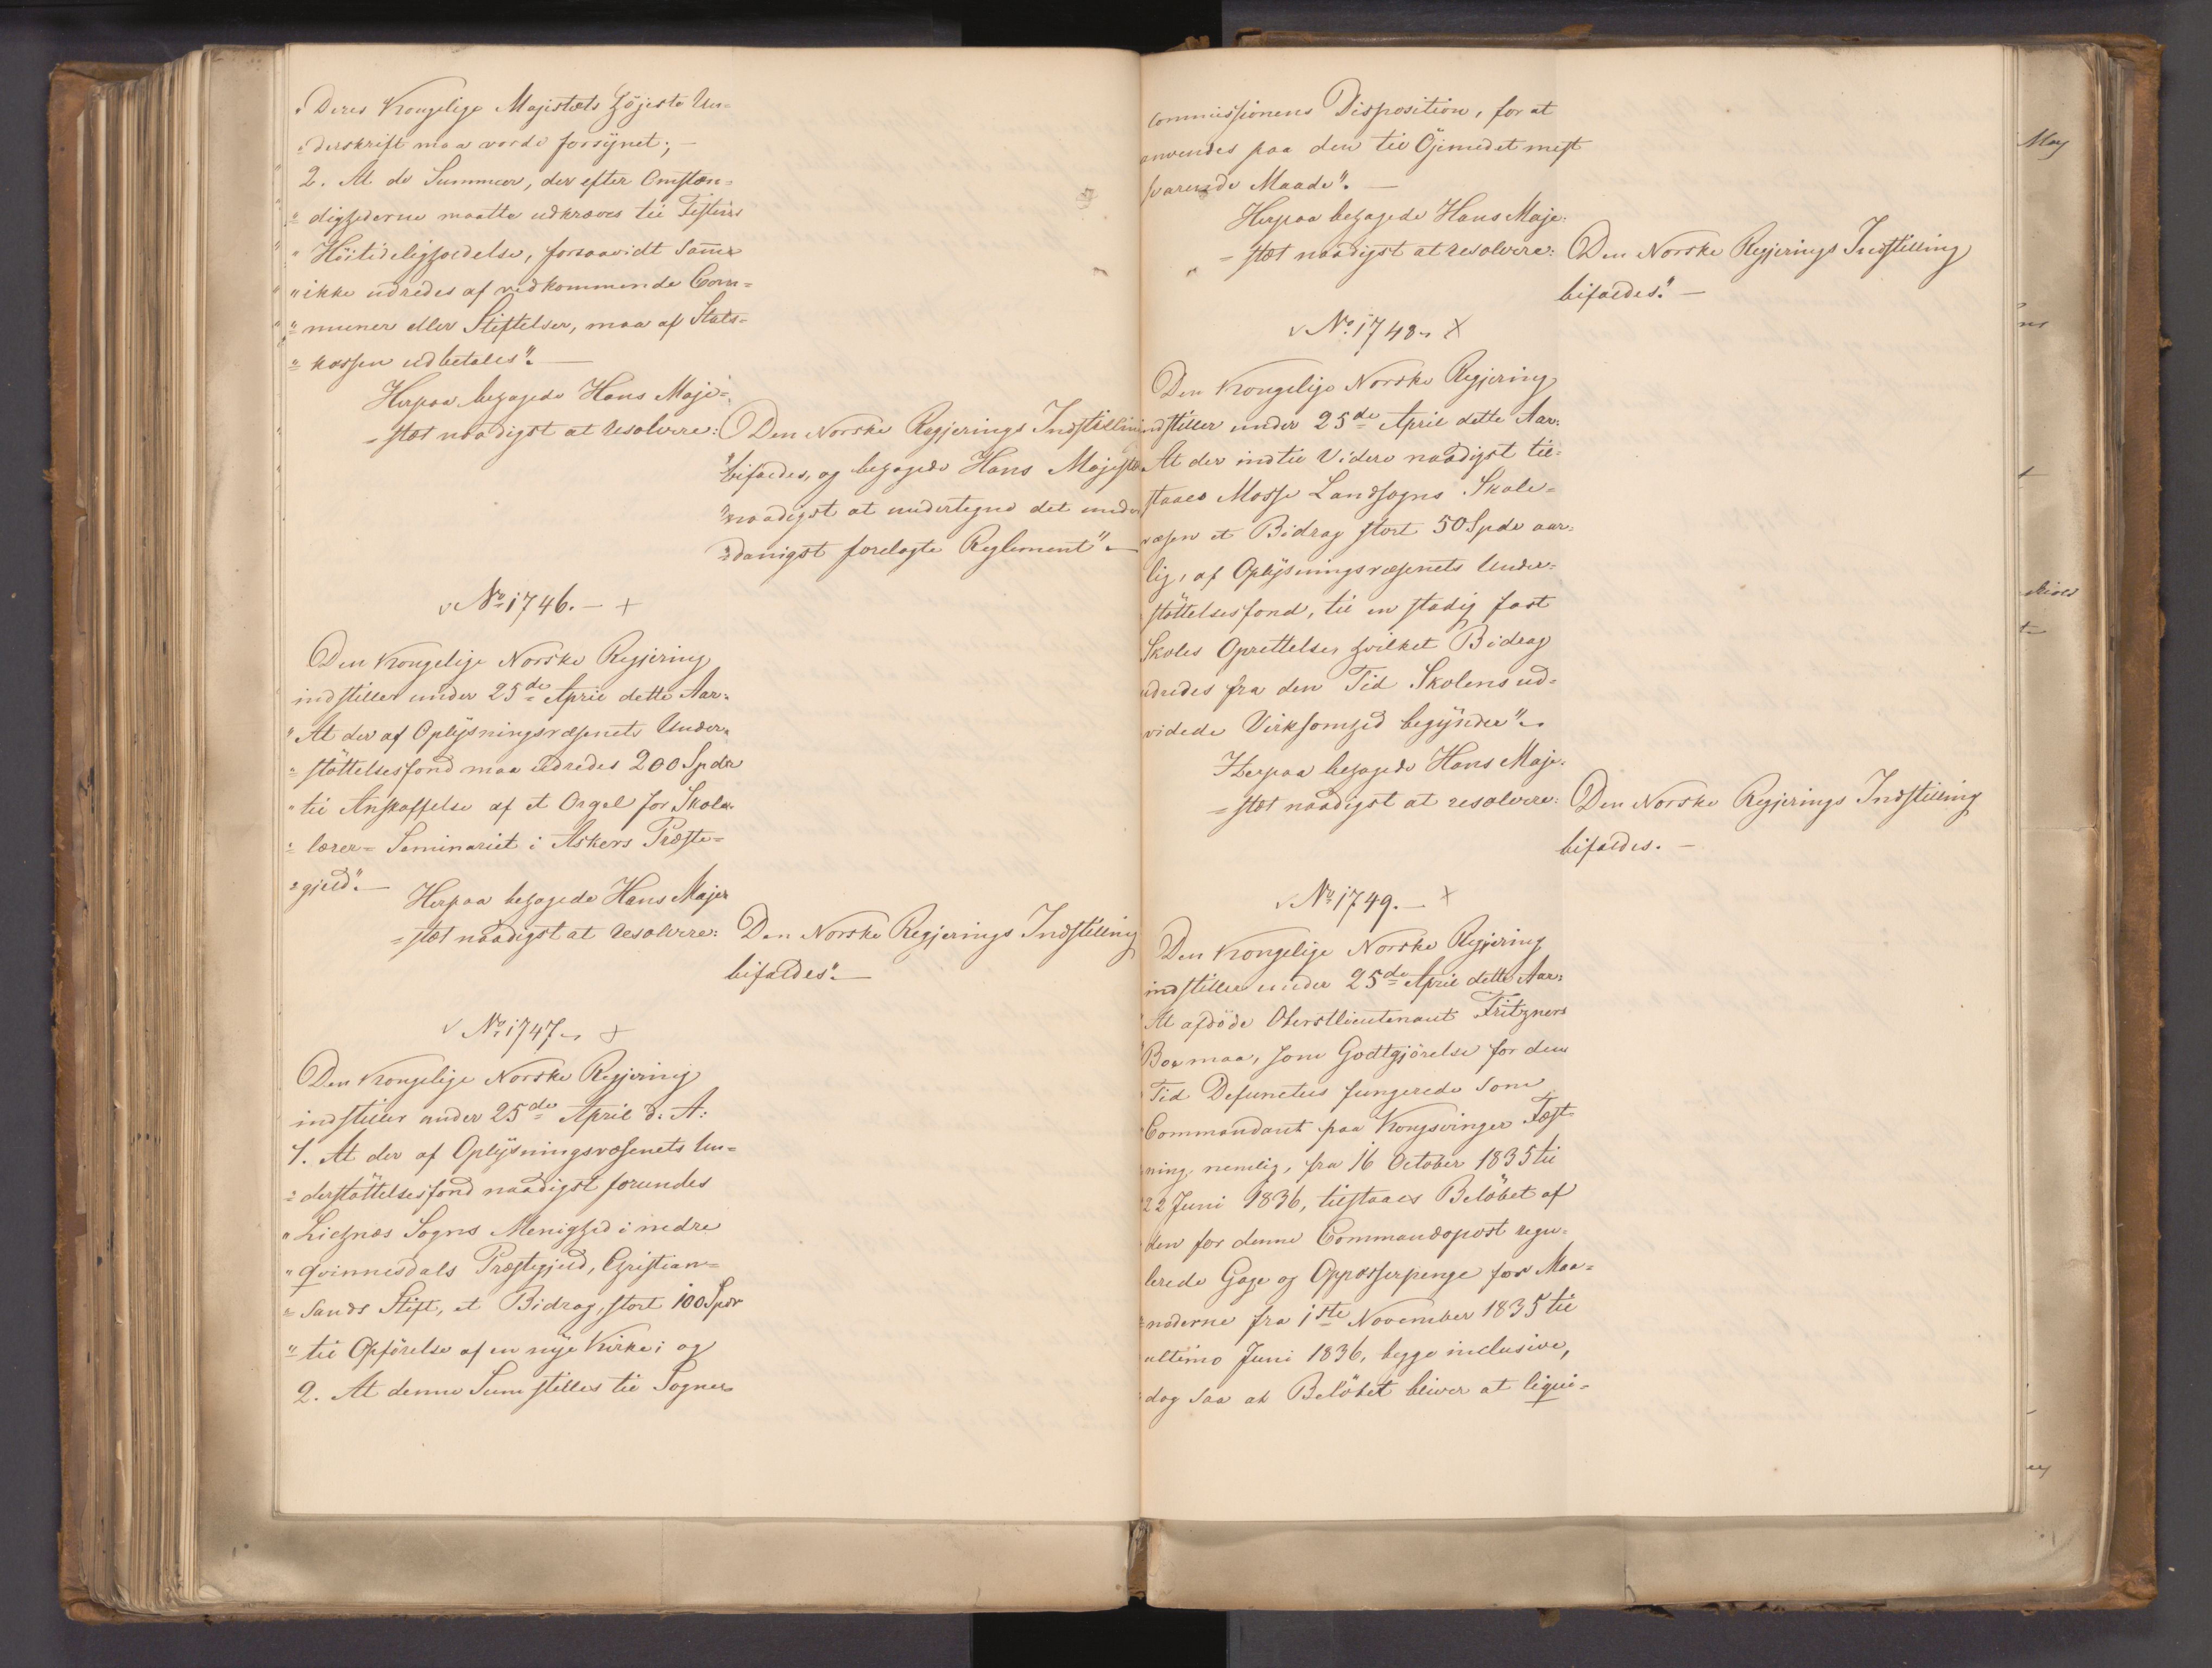 "Deres Kongelige Majestæts höjeste Un=
"derskrift maa vorde forsynet; —
2. At de Summer, der efter Omstæn=
"dighederne maatte udkræves til Festens
"Höitideligholdelse, forsaavidt Samme
"ikke udredes af vedkommende Com=
"muner eller Stiftelser, maa af Stats=
"kassen udbetales". —
Herpaa behagede Hans Maje=
=stæt naadigst at resolvere:
Den Norske Regjerings Indstilling
"bifaldes, og behagede Hans Majestæt
"naadigst at undertegne det under
"danigst forelagte Reglement". —
No 1746. — +
Den Kongelige Norske Regjering
indstiller under 25de April dette Aar:
"At der af Oplysningsvæsenets Under=
"stöttelsesfond maa udredes 200 Spdr
"til Anskaffelse af et Orgel for Skole=
"lærer= Seminariet i Askers Præste=
"gjeld". —
Herpaa behagede Hans Maje=
=stæt naadigst at resolvere:
Den Norske Regjerings Indstilling
bifaldes". —
No 1747. +
Den Kongelige Norske Regjering
indstiller under 25de April d. A:
1. At der af Oplysningsvæsenets Un=
"derstöttelsesfond naadigst forundes
"Liehnæs Sogns Menighed i nedre
"Qvinnesdals Præstegjeld, Christian=
"sands Stift, et Bidrag, stort 100 Spdr
"til Opförelse af en nye Kirke; og
2. At denne Sum stilles til Sogne=
commissionens Disposition, for at
anvendes paa den til Öjemedet mest
svarende Maade". —
Herpaa behagede Hans Maje=
=stæt naadigst at resolvere:
Den Norske Regjerings Indstilling
bifaldes". —
No 1748. X
Den Kongelige Norske Regjering
indstiller under 25de April dette Aar:
At der indtil Videre naadigst til=
staaes Mosse Landsogns Skole=
væsen et Bidrag stort 50 Spdr aar=
lig, af Oplysningsvæsenets Under=
stöttelsesfond, til en stadig fast
Skoles Oprettelse, hvilket Bidrag
udredes fra den Tid Skolens ud=
videde Virksomhed begynder".
Herpaa behagede Hans Maje=
=stæt naadigst at resolvere:
Den Norske Regjerings Indstilling
bifaldes. —
No 1749. — X
Den Kongelige Norske Regjering
indstiller under 25de April dette Aar:
At afdöde Oberstlieutenant Fritzners
Boe maa, som Godtgjörelse for den
Tid Defunctus fungerede som
Commandant paa Kongsvinger Fæst=
ning, nemlig, fra 16 October 1835 til
22 Juni 1836, tilstaaes Belöbet af
den for denne Commandopost regu=
lerede Gage og Oppasserpenge for Maa=
nederne fra 1ste November 1835 til
ultimo Juni 1836, begge inclusive,
dog saa at Belöbet bliver at liqui=
May